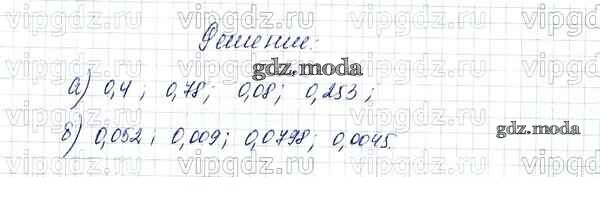 vipgdz.ru vipgdz.ru vipgdz.ru vipgdz.ru
Решение:
vipgdz.ru vipgdz.ru vipgdz.ru vipgdz.ru
gdz.moda
а) 0,4; 0,78; 0,08; 0,253;
б) 0,052; 0,009; 0,0798; 0,0045.
gdz.moda
vipgdz.ru vipgdz.ru vipgdz.ru vipgdz.ru